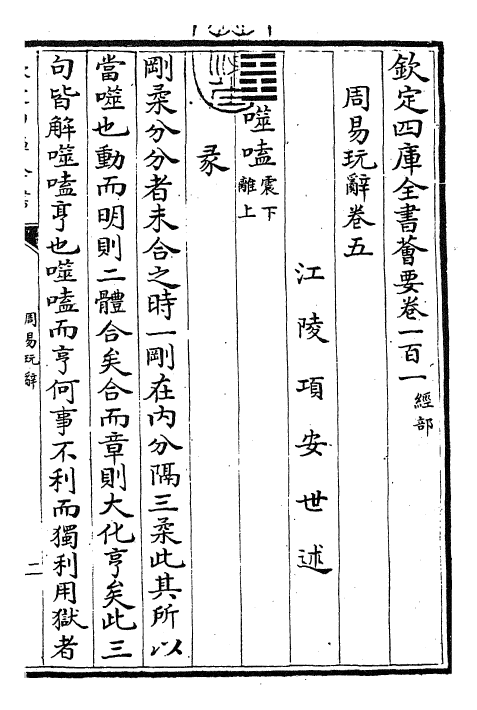 欽定四庫全書薈要卷一百一 經部
周易玩辭卷五
江陵項安世述
噬嗑 震下 離上
彖
剛柔分分者未合之時一剛在內分隔三柔此其所以
當噬也動而明則二體合矣合而章則大化亨矣此三
句皆解噬嗑亨也噬嗑而亨何事不利而獨利用獄者
周易玩辭
二